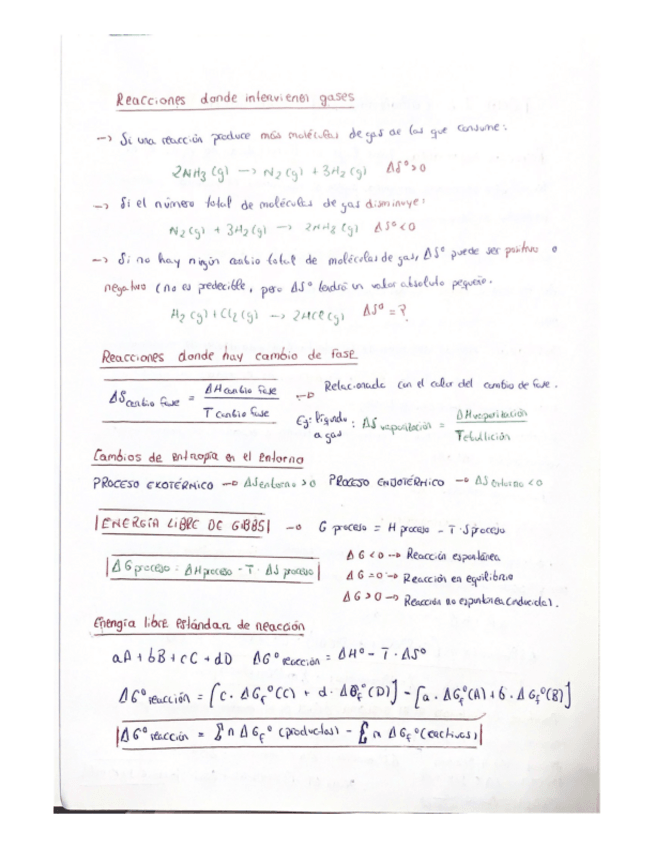 Reacciones donde intervienen gases
→ Si una reacción produce más moléculas de gas de las que consume:
2NH3 (g) → N2 (g) + 3H2 (g) ΔS° > 0
→ Si el número total de moléculas de gas disminuye:
N2 (g) + 3H2 (g) → 2NH3 (g) ΔS° < 0
→ Si no hay nigún cambio total de moléculas de gas, ΔS° puede ser positivo o
negativo (no es predecible, pero ΔS° tendrá un valor absoluto pequeño.
H2 (g) + Cl2 (g) → 2HCl (g) ΔS° = ?
Reacciones donde hay cambio de fase
ΔS cambio fase = ΔH cambio fase / T cambio fase → Relacionada con el calor del cambio de fase.
Ej: líquido a gas : ΔS vaporización = ΔH vaporización / T ebullición
Cambios de entropía en el entorno
PROCESO EXOTÉRMICO → ΔS entorno > 0 PROCESO ENDOTÉRMICO → ΔS entorno < 0
|ENERGÍA LIBRE DE GIBBS| → G proceso = H proceso - T · S proceso
|ΔG proceso = ΔH proceso - T · ΔS proceso|
ΔG < 0 → Reacción espontánea
ΔG = 0 → Reacción en equilibrio
ΔG > 0 → Reacción no espontánea (inducida).
Energía libre estándar de reacción
aA + bB + cC + dD ΔG° reacción = ΔH° - T · ΔS°
ΔG° reacción = [c · ΔGf° (C) + d · ΔGf° (D)] - [a · ΔGf° (A) + b · ΔGf° (B)]
|ΔG° reacción = Σ n ΔGf° (productos) - Σ n ΔGf° (reactivos)|